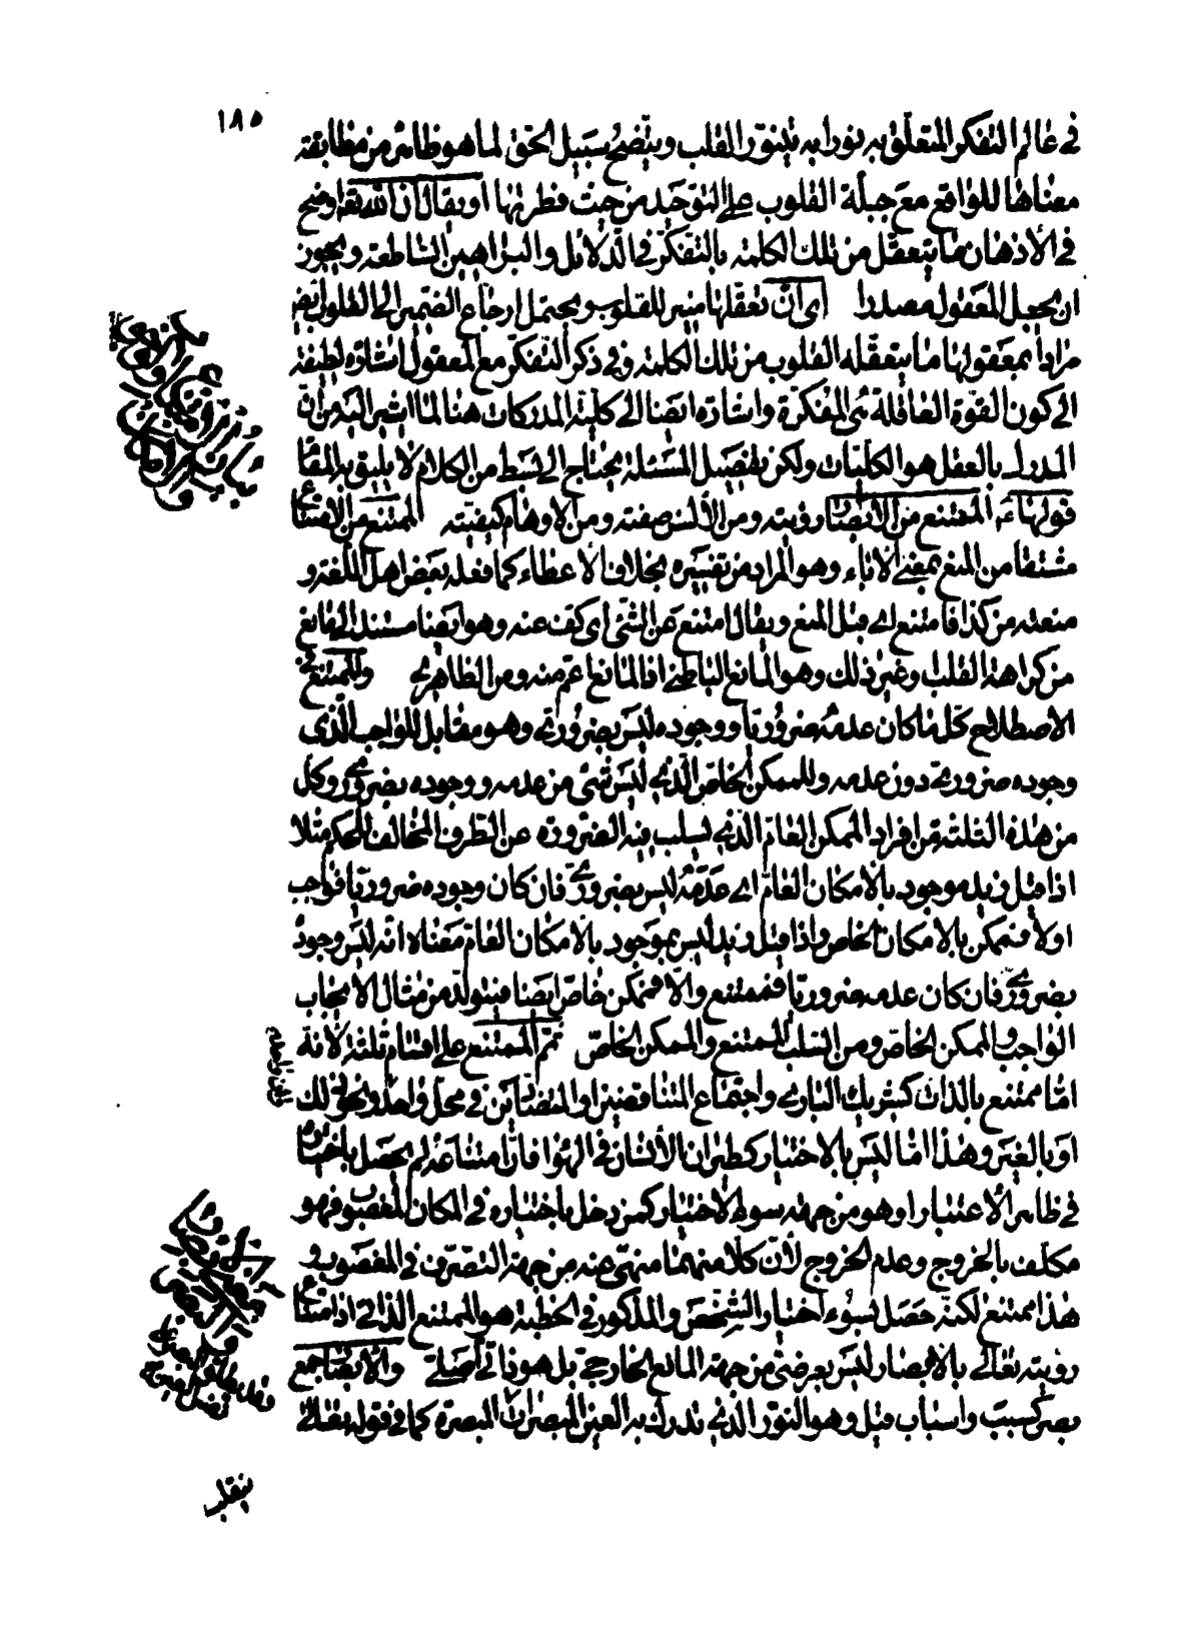 ١٨٥
في عالم التفكر المتعلق به نورا به يتنور القلب ويتضح سبيل الحق لما هو ظاهر من مطابقة
معناها للواقع مع جبلة القلوب على التوحيد من حيث فطرتها او يقال ان الله تعالى اوضح
في الأذهان ما يتعقل من تلك الكلمة بالتفكر في الدلائل والبراهين الساطعة ويجوز
ان يجعل المعقول مصدرا اى ان تعقلها منير للقلوب ويحتمل ارجاع الضمير الى القلوب ايضا
مرادا بمعقولها ما يتعقله القلوب من تلك الكلمة وفي ذكر التفكر مع المعقول اشارة لطيفة
الى كون القوة العاقلة هى المفكرة واشارة ايضا الى كلية المدركات هنا لما اشير اليه من ان
المدرك بالعقل هو الكليات ولكن تفصيل المسئلة يحتاج الى بسط من الكلام لا يليق بالمقام
قولها ع الممتنع من الابصار رؤيته ومن الألسن صفته ومن الاوهام كيفيته الممتنع من الامتناع
مشتقا من المنع بمعنى الاباء وهو المراد من تفسيره بخلاف الأعطاء كما فعله بعض اهل اللغة و
منعته من كذا فامتنع اى قبل المنع ويقال امتنع عن الشئ اى كف عنه وهو ايضا مستند الى مانع
من كراهة القلب وغير ذلك وهو المانع الباطنى اذ المانع اعم منه ومن الظاهرى والممتنع فى
الاصطلاح كل ما كان عدمه ضروريا ووجوده ليس بضرورى وهو مقابل للواجب الذى
وجوده ضرورى دون عدمه وللممكن الخاص الذى ليس شئ من عدمه ووجوده بضرورى وكل
من هذه الثلثة من افراد الممكن العام الذى يسلب فيه الضرورة عن الطرف المخالف للحكم مثلا
اذا قيل زيد موجود بالامكان العام اى عدمه ليس بضرورى فان كان وجوده ضروريا فواجب
اولا فممكن بالامكان الخاص واذا قيل زيد ليس بموجود بالامكان العام معناه انه ليس وجوده
بضرورى فان كان عدمه ضروريا فممتنع والا فممكن خاص ايضا فيتولد من مثال الايجاب
الواجب والممكن الخاص ومن السلب الممتنع والممكن الخاص ثم الممتنع على اقسام ثلثة لانه
اما ممتنع بالذات كشريك البارى واجتماع المتناقضين او المتضادين في محل واحد ونحو ذلك
او بالغير وهذا اما ليس بالاختيار كطيران الأنسان في الهواء فان امتناعه لم يحصل باختياره
في ظاهر الاعتبار او هو من جهة سوء الاختيار كمن دخل باختياره في المكان المغصوب فهو
مكلف بالخروج وعدم الخروج لأن كلا منهما منهى عنه من جهة التصرف في المغصوب و
هذا ممتنع لكنه حصل بسوء اختيار الشخص والمذكور في الخطبة هو الممتنع الذاتى اذ امتناع
رؤيته تعالى بالابصار ليس بعرضى من جهة المانع الخارجى بل هو ذاتى أصلى والابصار جمع
بصر كسبب واسباب قيل وهو النور الذى تدرك به العين المبصرات المبصرة كما في قوله تعالى
ينقلب